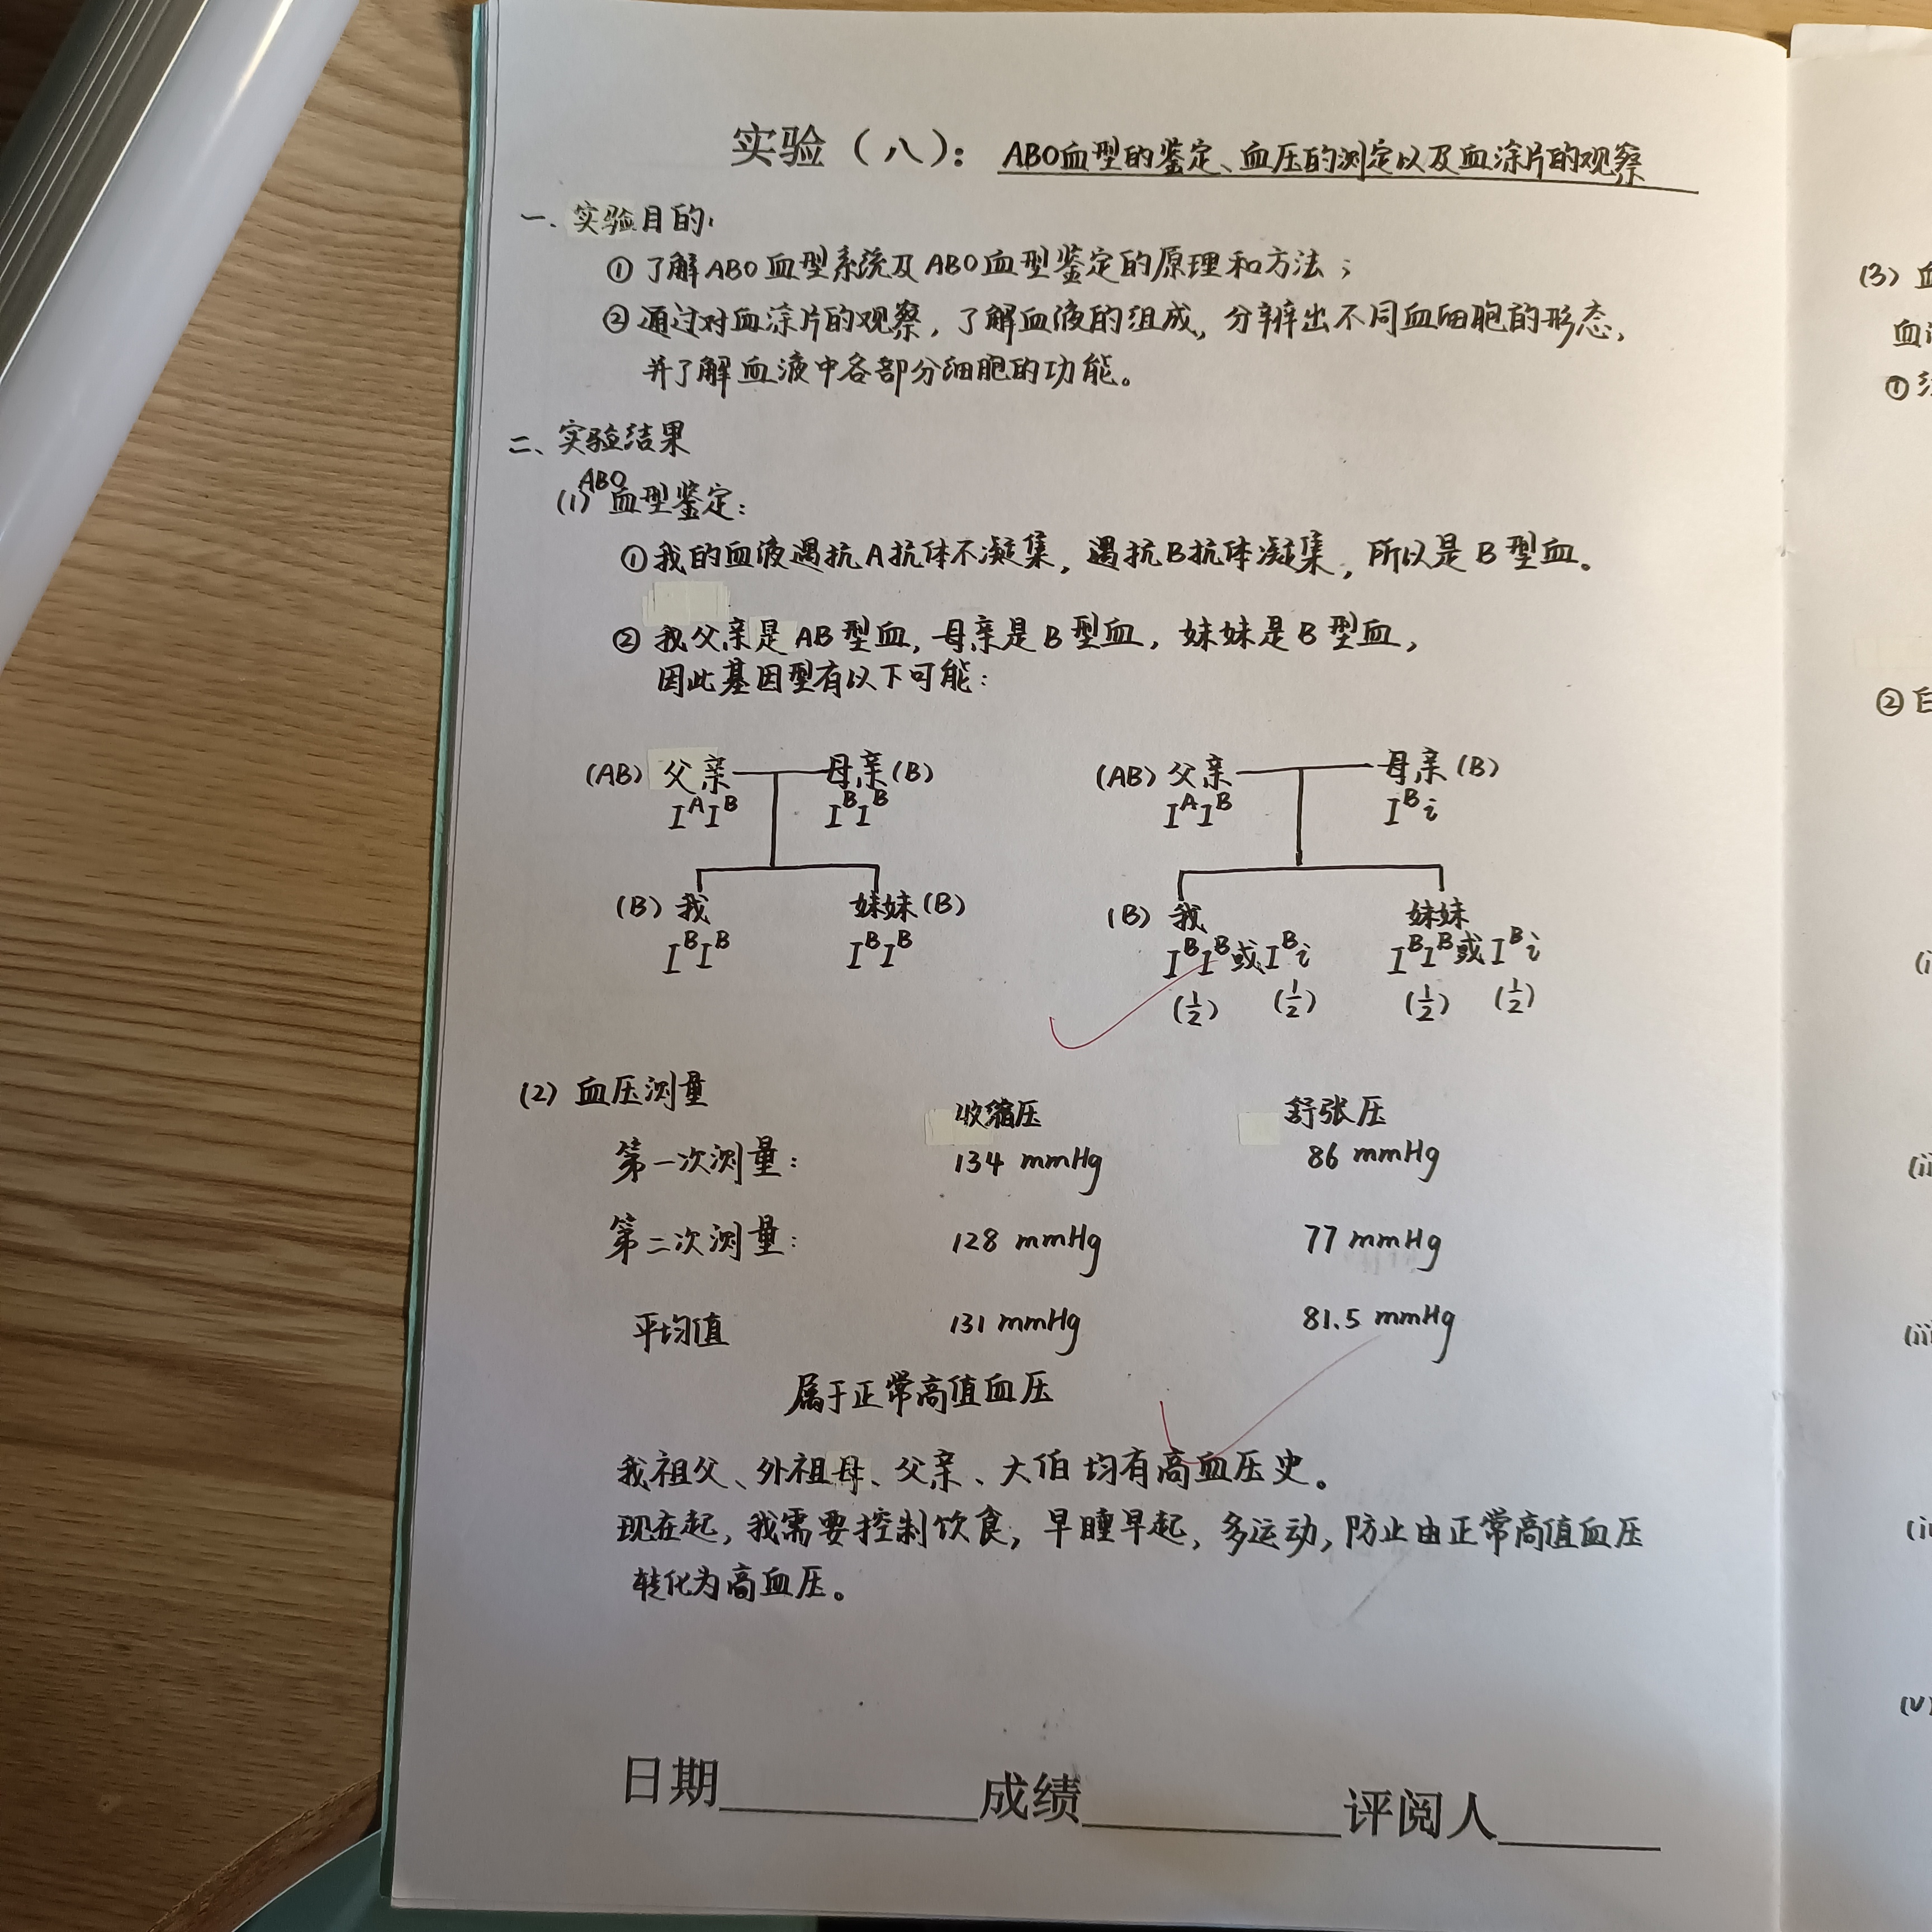 实验（八）：ABO血型的鉴定、血压的测定以及血涂片的观察
一、实验目的：
① 了解ABO血型系统及ABO血型鉴定的原理和方法；
② 通过对血涂片的观察，了解血液的组成，分辨出不同血细胞的形态，
并了解血液中各部分细胞的功能。
二、实验结果
(1) ABO血型鉴定：
① 我的血液遇抗A抗体不凝集，遇抗B抗体凝集，所以是B型血。
② 我父亲是AB型血，母亲是B型血，妹妹是B型血，
因此基因型有以下可能：
(AB) 父亲 母亲 (B)
I^A I^B I^B I^B
(B) 我 妹妹 (B)
I^B I^B I^B I^B
(AB) 父亲 母亲 (B)
I^A I^B I^B i
(B) 我 妹妹
I^B I^B 或 I^B i I^B I^B 或 I^B i
(1/2) (1/2) (1/2) (1/2)
(2) 血压测量
收缩压 舒张压
第一次测量： 134 mmHg 86 mmHg
第二次测量： 128 mmHg 77 mmHg
平均值 131 mmHg 81.5 mmHg
属于正常高值血压
我祖父、外祖母、父亲、大伯均有高血压史。
现在起，我需要控制饮食，早睡早起，多运动，防止由正常高值血压
转化为高血压。
日期 成绩 评阅人
(3)
①
②